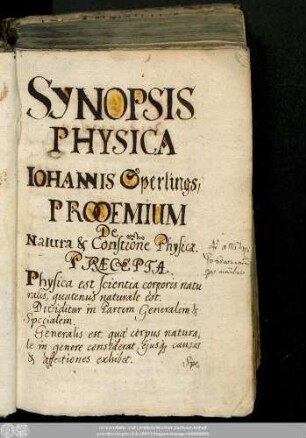 SYNOPSIS
PHYSICA
IOHANNIS Sperlings,
PROOEMIUM
De
Natura & Constione Physicæ.
PRÆCEPTA.
Physica est scientia corporis natu
ralis, quatenus naturale est.
Dividitur in Partem Generalem &
Specialem.
Generalis est, quæ corpus natura,
le in genere considerat, ejusq, causas
& affectiones exhibet.
Spe,